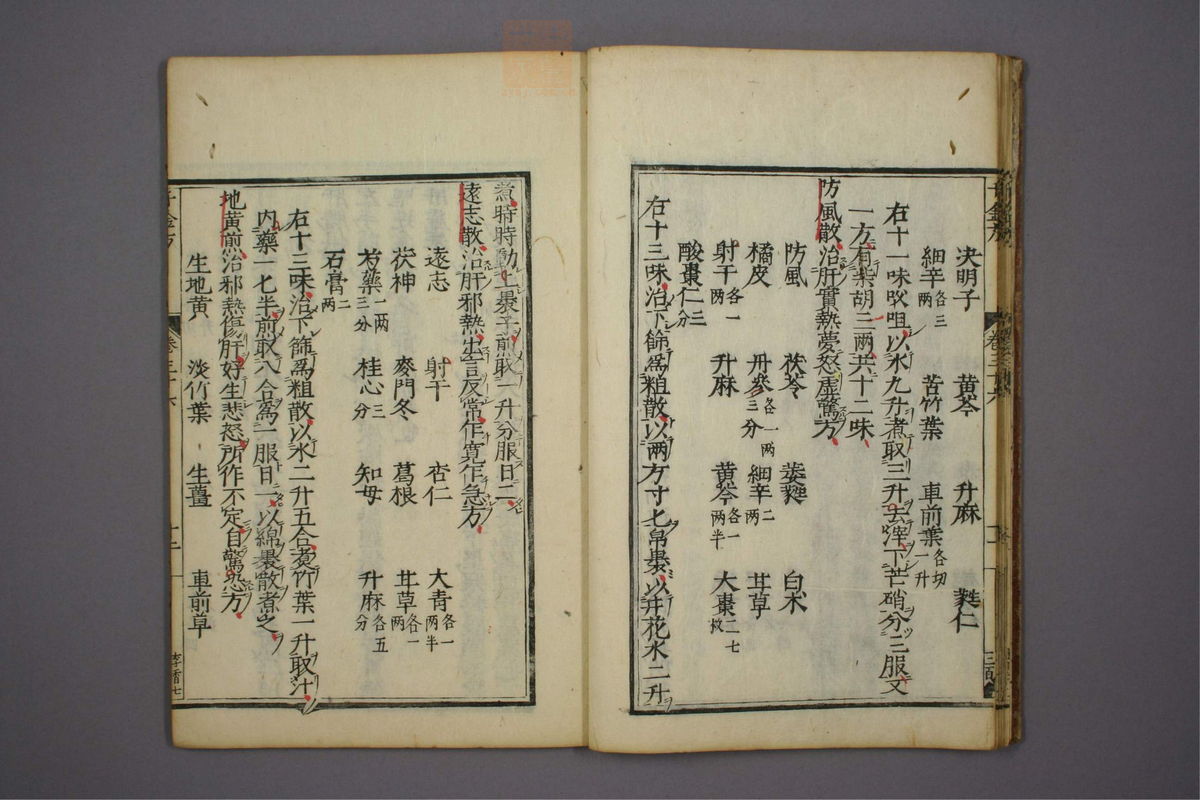 決明子 黄芩 升麻 蕤仁
細辛各三两 苦竹葉 車前葉各切一升
右十一味㕮咀以水九升煮取三升去滓下芒硝分三服又
一方有柴胡三两共十二味
防風散治肝實熱夢怒虛驚方
防風 茯苓 萎蕤 白朮
橘皮 丹參各一两三分 細辛二两 甘草
射干各一两 升麻 黄芩各一两半 大棗二七枚
酸棗仁三分
右十三味治下篩爲粗散以兩方寸七帛裹以井花水二升
煮時時動上裹子煎取一升分服日二
遠志散治肝邪熱出言反常乍寬乍急方
遠志 射干 杏仁 大青各一两半
茯神 麥門冬 葛根 甘草各一两
芍藥一两三分 桂心三分 知母 升麻各五分
石膏二两
右十三味治下篩爲粗散以水二升五合煮竹葉一升取汁
内藥一七半煎取八合爲一服日一以綿裹散煮之
地黄煎治邪熱傷肝好生悲怒所作不定自驚恐方
生地黄 淡竹葉 生薑 車前草